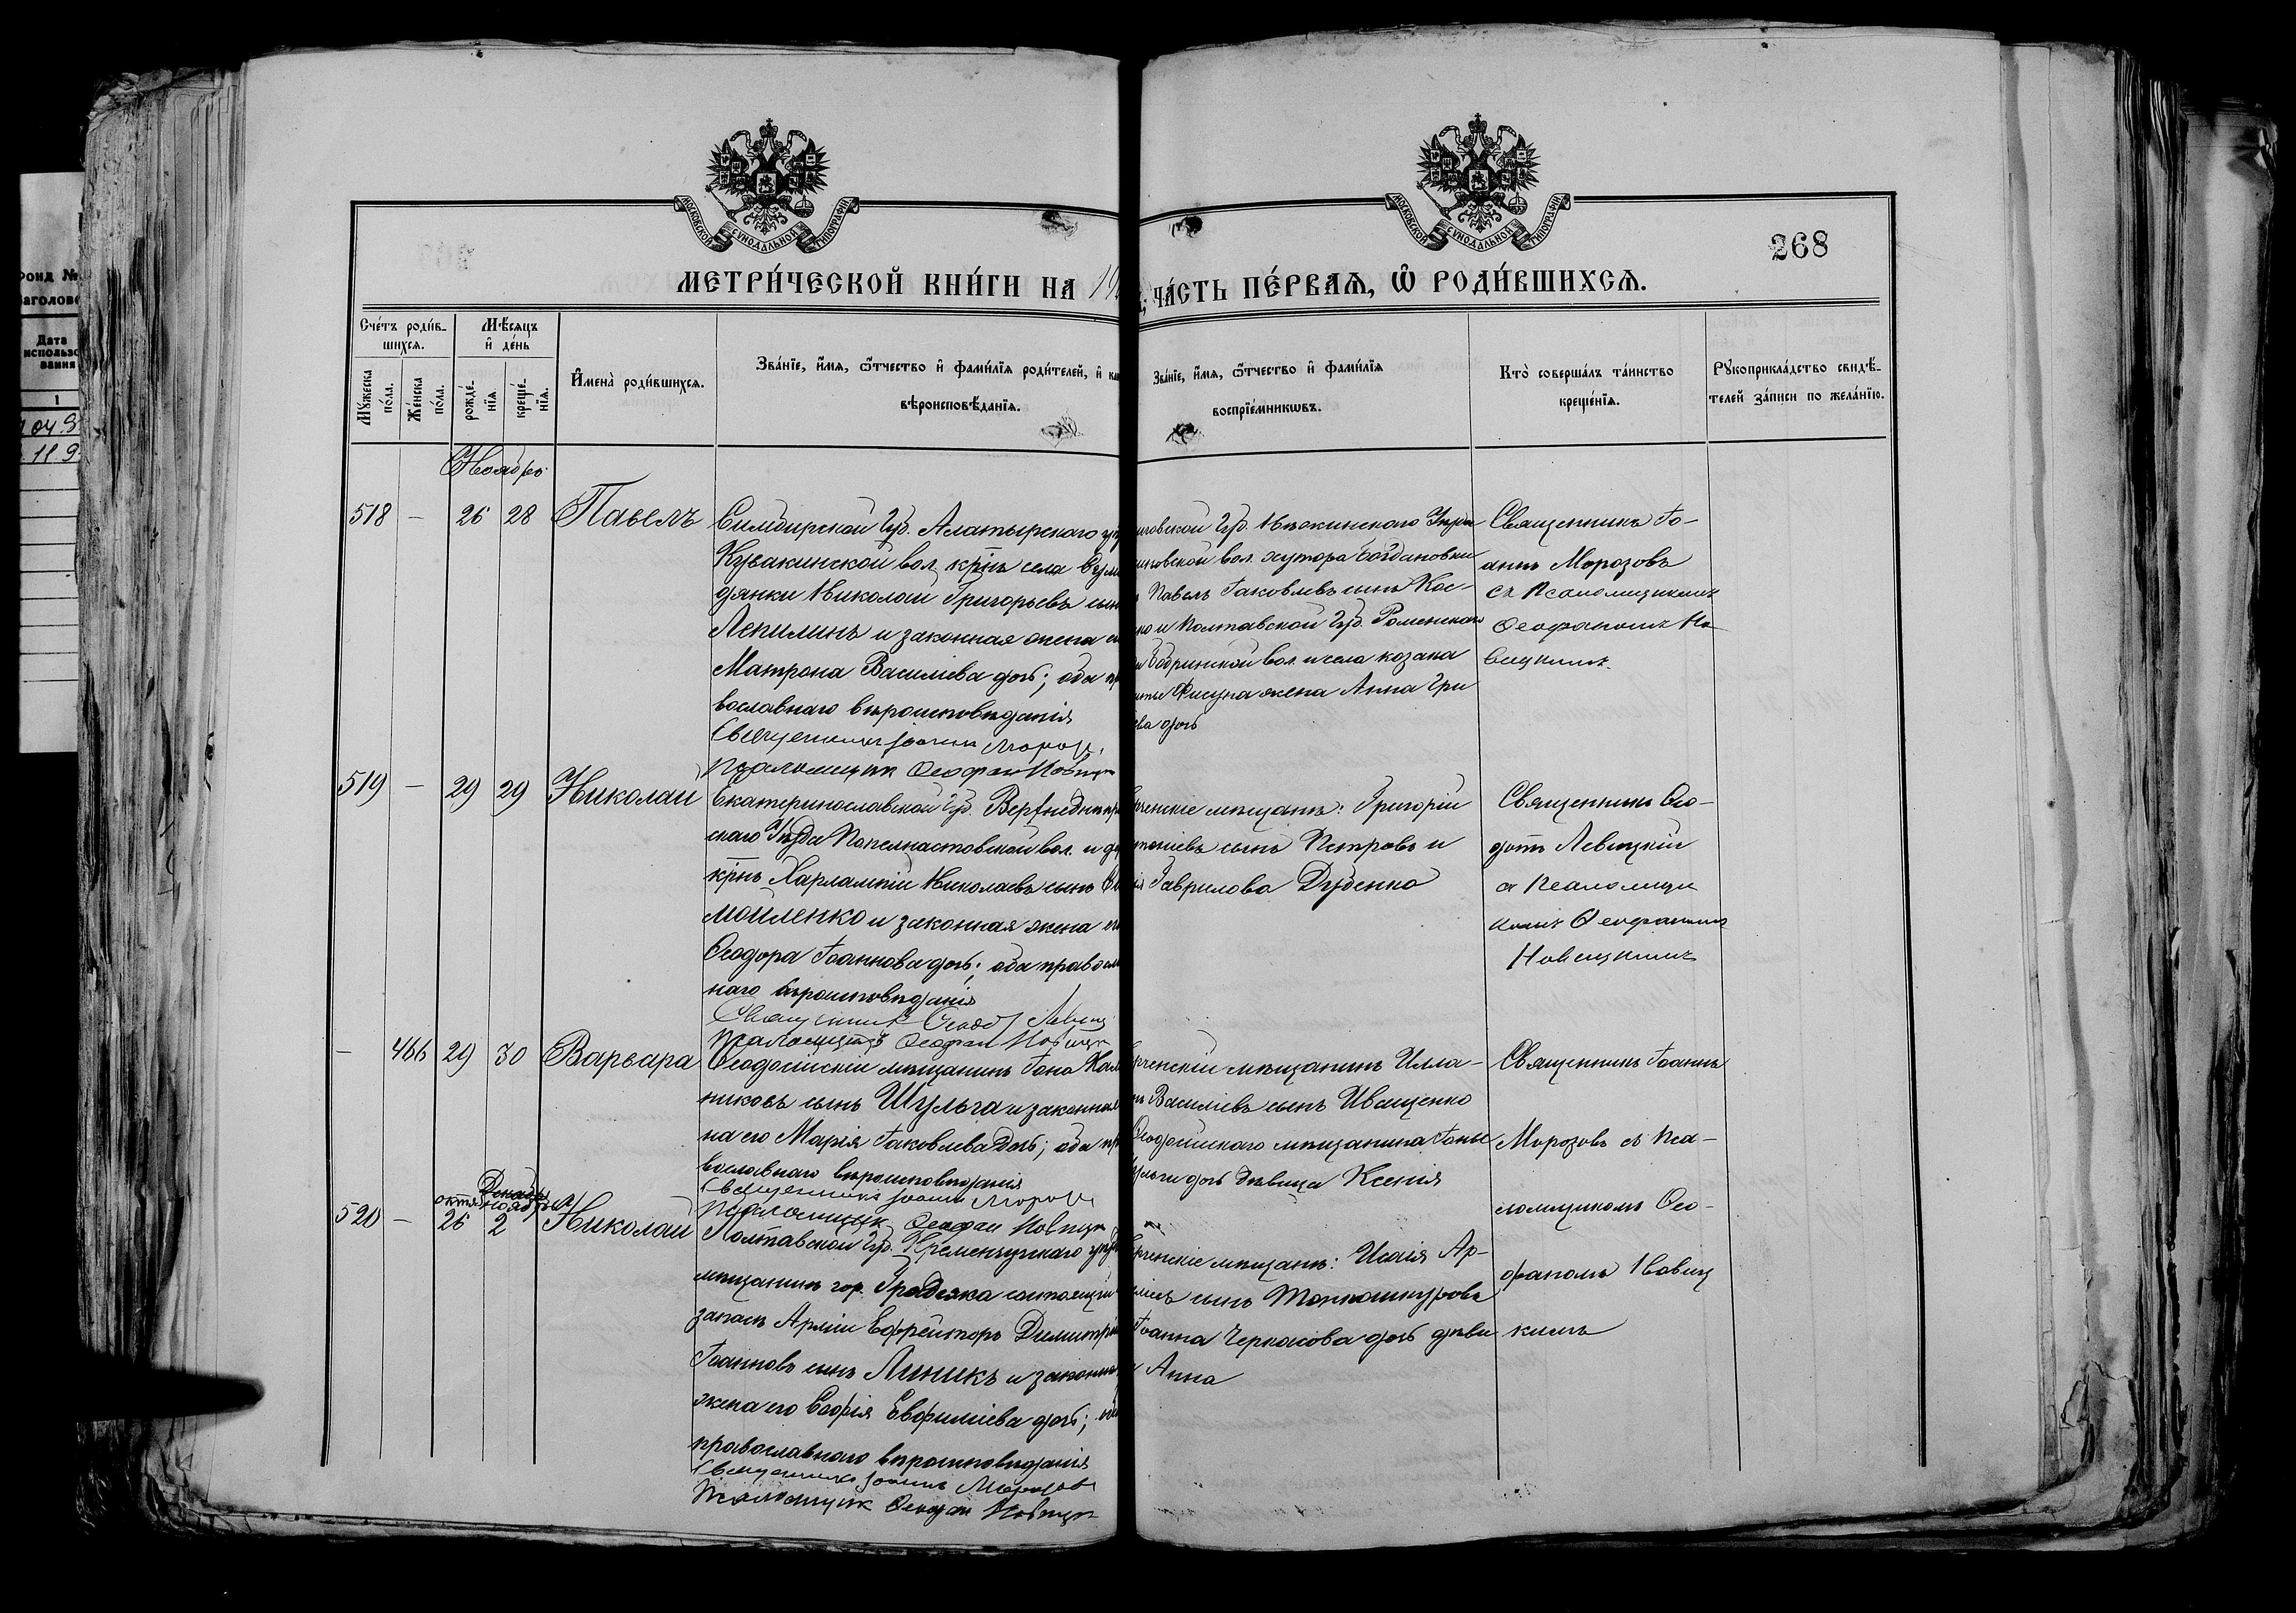 МОСКОВСКОЙ СѴНОДАЛЬНОЙ ТИПОГРАФІИ
МОСКОВСКОЙ СѴНОДАЛЬНОЙ ТИПОГРАФІИ
268
МЕТРИ́ЧЕСКОЙ КНИ́ГИ НА 19
ЧА́СТЬ ПЕ́РВАѦ, Ѿ РОДИ́ВШИХСѦ.
Фонд №
Дата
использо
вания
1
Сче́тъ роди́в-
шихсѧ.
Мѣ́сѧцъ
и҆ де́нь
Мꙋ́жеска по́ла.
Же́нска по́ла.
рожде́-
нїѧ
креще́-
нїѧ.
И҆мена̀ роди́вшихсѧ.
Зва́нїе, и҆́мѧ, ѻ҆́тчество и҆ фами́лїѧ роди́телей, и҆ как
вѣроисповѣ́данїѧ.
Зва́нїе, и҆́мѧ, ѻ҆́тчество и҆ фами́лїѧ
воспрїе́мникѡвъ.
Кто̀ соверша́лъ та́инство
креще́нїѧ.
Рꙋкоприкла́дство свидѣ́-
телей за́писи по жела́нїю.
Ноябрь
518 — 26 28 Павелъ
Симбирской Губ. Алатырскаго у
Кувакинской вол. крнъ села
дянки Николай Григорьевъ сын
Лепилинъ и законная жена е
Матрона Василіева дочь; оба пр
вославнаго вѣроисповѣданія
Священникъ Іоаннъ Мороз
Псаломщик Феофан Новицк
иговской Губ. Нѣжинскаго Уѣзда
иновской вол. хутора Богдановки
Павелъ Іаковлевъ сынъ Кос-
ко и Полтавской Губ. Роменскаго
Бобринской вол. и села козака
Фисуна жена Анна Гри
ева дочь
Священникъ Іо-
аннъ Морозовъ
съ Псаломщикомъ
Феофаномъ Но
вицкимъ.
519 — 29 29 Николай
Екатеринославской Губ. Верхнеднѣпр
скаго Уѣзда Попельнастовской вол. и д
крнъ Харлампій Николаевъ сынъ
мойленко и законная жена ег
Феодора Іоаннова дочь; оба правосла
наго вѣроисповѣданія
Священник Феодот Левиц
Псаломщикъ Феофан Новицк
рченскіе мѣщане: Григорій
тоніевъ сынъ Петровъ и
ія Гаврилова Дуденко
Священникъ Фео-
дотъ Левицкій
съ Псаломщи
комъ Феофаномъ
Новицкимъ
— 466 29 30 Варвара
Феодосійскій мѣщанинъ Іона Кал
никовъ сынъ Шульга и законная
на его Марія Іаковлева дочь; оба пр
вославнаго вѣроисповѣданія
Священникъ Іоаннъ Морозо
Псаломщик Феофан Новицк
рченскій мѣщанинъ Илла-
нъ Василіевъ сынъ Иващенко
Феодосійскаго мѣщанина Іоны
ульги дочь дѣвица Ксенія
Священникъ Іоаннъ
Морозовъ съ Пса-
ломщикомъ Фео-
фаномъ Новиц
кимъ
Декабрь
октя
ноябрь
520 — 26 2 Николай
Полтавской Губ. Кременчугскаго уѣзд
мѣщанинъ гор. Градежска состоящій
запасѣ Арміи Ефрейторъ Димитрій
Іоанновъ сынъ Линикъ и законная
жена его Софія Евфиміева дочь; оба
православнаго вѣроисповѣданія
Священникъ Іоаннъ Морозовъ
Псаломщик Феофан Новицк
рченскіе мѣщане: Исаія Ар-
міевъ сынъ Тонкошкуровъ
Іоанна Черкасова дочь дѣви
Анна